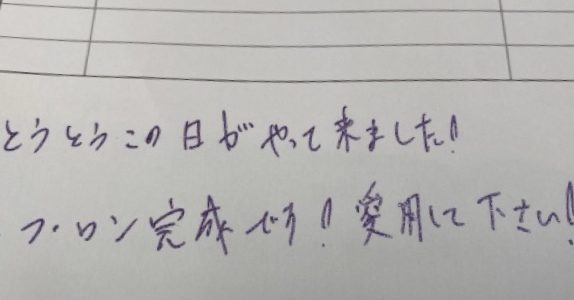 とうとうこの日がやって来ました!
フ・ロン完成です!愛用して下さい!